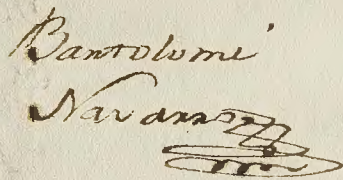 Bartolomé
Navarro